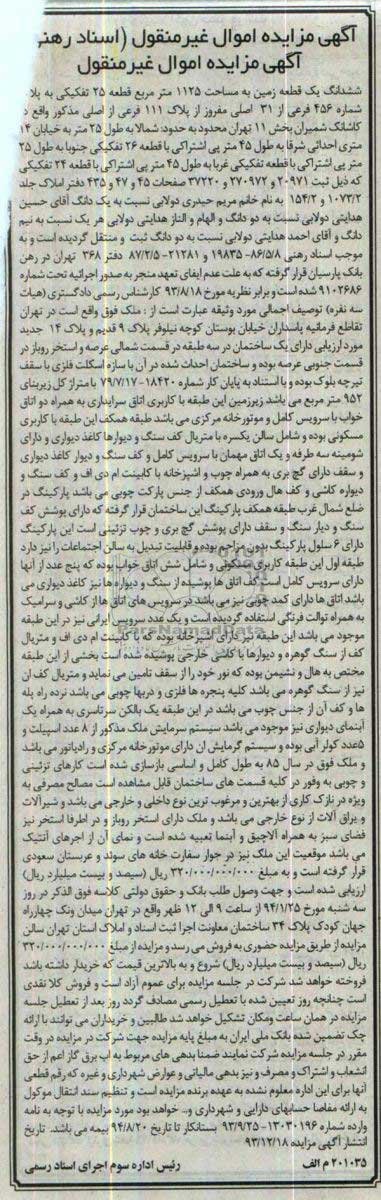 آگهی مزایده اموال غیرمنقول (اسناد رهنی
آگهی مزایده اموال غیرمنقول
ششدانگ یک قطعه زمین به مساحت ۱۱۲۵ متر مربع قطعه ۲۵ تفکیکی به پلا
شماره ۴۵۶ فرعی از ۳۱ اصلی مفروز از پلاک ۱۱۱ فرعی از اصلی مذکور واقع د
کاشانک شمیران بخش ۱۱ تهران محدود به حدود: شمالا به طول ۲۵ متر به خیابان ۱۴
متری احداثی شرقا به طول ۴۵ متر پی اشتراکی با قطعه ۲۶ تفکیکی جنوبا به طول ۲۵
متر پی اشتراکی با قطعه تفکیکی غربا به طول ۴۵ متر پی اشتراکی با قطعه ۲۴ تفکیکی
که ذیل ثبت ۲۰۹۷۱ و ۲۷۰۹۷۲ و ۳۷۲۲۰ صفحات ۴۵ و ۴۷ و ۴۳۵ دفتر املاک جلد
۱۰۷۳/۲ و ۱۵۴/۲ به نام خانم مریم حیدری دولابی نسبت به یک دانگ آقای حسین
هدایتی دولابی نسبت به دو دانگ و الهام و الناز هدایتی دولابی هر یک نسبت به نیم
دانگ و آقای احمد هدایتی دولابی نسبت به دو دانگ ثبت و منتقل گردیده است و به
موجب اسناد رهنی ۸۶/۵/۸-۱۹۸۳۵ و ۲۱۲۸۱-۸۷/۲/۵ دفتر ۳۶۸ تهران در رهن
بانک پارسیان قرار گرفته که به علت عدم ایفای تعهد منجر به صدور اجرائیه تحت شماره
۹۱۰۲۶۸۶ شده است و برابر نظریه مورخ ۹۳/۸/۱۸ کارشناس رسمی دادگستری (هیات
سه نفره) توصیف اجمالی مورد وثیقه عبارت است از : ملک فوق واقع است در تهران
تقاطع فرمانیه پاسداران خیابان بوستان کوچه نیلوفر پلاک ۹ قدیم و پلاک ۱۴ جدید
مورد ارزیابی دارای یک ساختمان در سه طبقه در قسمت شمالی عرصه و استخر روباز در
قسمت جنوبی عرصه بوده و ساختمان احداث شده در آن با سازه اسکلت فلزی با سقف
تیرچه بلوک بوده و با استناد به پایان کار شماره ۱۸۴۲۰-۷۹/۷/۱۷ با متراز کل زیربنای
۹۵۲ متر مربع می باشد زیرزمین این طبقه با کاربری اتاق سرایداری به همراه دو اتاق
خواب با سرویس کامل و موتورخانه مرکزی می باشد طبقه همکف این طبقه با کاربری
مسکونی بوده و شامل سالن یکسره با متریال کف سنگ و دیوارها کاغذ دیواری و دارای
شومینه سه طرفه و یک اتاق مهمان با سرویس کامل و کف سنگ و دیوار کاغذ دیواری
و سقف دارای گچ بری به همراه چوب و آشپزخانه با کابینت ام دی اف و کف سنگ و
دیواره کاشی و کف هال ورودی همکف از جنس پارکت چوبی می باشد پارکینگ در
ضلع شمال غرب طبقه همکف پارکینگ این ساختمان قرار گرفته که دارای پوشش کف
سنگ و دیار سنگ و سقف دارای پوشش گچ بری و چوب تزئینی است این پارکینگ
دارای ۶ سلول پارکینگ بدون مزاحم بوده و قابلیت تبدیل به سالن اجتماعات را نیز دارد
طبقه اول این طبقه کاربری مسکونی و شامل شش اتاق خواب بوده که پنج عدد از آنها
دارای سرویس کامل است کف اتاق ها پوشیده از سنگ و دیواره ها نیز کاغذ دیواری می
باشد اتاق ها دارای کمد چوبی نیز می باشد در سرویس های اتاق ها از کاشی و سرامیک
به همراه توالت فرنگی استفاده گردیده است و یک عدد سرویس ایرانی نیز در این طبقه
موجود می باشد این طبقه نیز دارای آشپزخانه بوده که با کابینت ام دی اف و متریال
کف از سنگ گوهره و دیوارها با کاشی خارجی پوشیده شده است بخشی از این طبقه
مختص به هال و نشیمن بوده که نور خود را از سقف تامین می نماید و متریال کف ان
نیز از سنگ گوهره می باشد کلیه پنجره ها فلزی و دربها چوبی می باشد نرده راه پله
ها و کف آن از جنس چوب می باشد در این طبقه یک بالکن سرتاسری به همراه یک
آبنمای دیواری نیز موجود می باشد سیستم سرمایش ملک مذکور از ۸ عدد اسپیلت و
۵عدد کولر آبی بوده و سیستم گرمایش ان دارای موتورخانه مرکزی و رادیاتور می باشد
و ملک فوق در سال ۸۵ به طول کامل و اساسی بازسازی شده است کارهای تزئینی
و چوبی به وفور در کلیه قسمت های ساختمان قابل مشاهده است مصالح مصرفی به
ویژه در نازک کاری از بهترین و مرغوب ترین نوع داخلی و خارجی می باشد و شیرآلات
و یراق آلات از نوع خارجی می باشد و ملک دارای استخر روباز و در اطرفا استخر نیز
فضای سبز به همراه آلاچیق و آبنما تعبیه شده است و نمای آن از اجرهای آنتیک
می باشد موقعیت این ملک نیز در جوار سفارت خانه های سوئد و عربستان سعودی
قرار گرفته است و به مبلغ ۳۲۰/۰۰۰/۰۰۰/۰۰۰ ریال (سیصد و بیست میلیارد ریال)
ارزیابی شده است و جهت وصول طلب بانک و حقوق دولتی کلاسه فوق الذکر در روز
سه شنبه مورخ ۹۴/۱/۲۵ از ساعت ۹ الی ۱۲ ظهر واقع در تهران میدان ونک چهارراه
جهان کودک پلاک ۳۴ ساختمان معاونت اجرا ثبت اسناد و املاک استان تهران سالن
مزایده از طریق مزایده حضوری به فروش می رسد و مزایده از مبلغ ۳۲۰/۰۰۰/۰۰۰/۰۰۰
ریال (سیصد و بیست میلیارد ریال) شروع و به بالاترین قیمت که خریدار داشته باشد
فروخته خواهد شد شرکت در جلسه مزایده برای عموم آزاد است و فروش کلا نقدی
است چنانچه روز تعیین شده با تعطیل رسمی مصادف گردد روز بعد از تعطیل جلسه
مزایده در همان ساعت ومکان تشکیل خواهد شد طالبین و خریداران می توانند با ارائه
چک تضمین شده بانک ملی ایران به مبلغ پایه مزایده جهت شرکت در مزایده در وقت
مقرر در جلسه مزایده شرکت نمایند ضمنا بدهی های مربوط به اب برق گاز اعم از حق
انشعاب و اشتراک و مصرف و نیز بدهی مالیاتی و عوارض شهرداری و غیره که رقم قطعی
آنها برای این اداره معلوم نشده به عهده برنده مزایده است و تنظیم سند انتقال موکول
به ارائه مفاصا حسابهای دارایی و شهرداری و.. خواهد بود مورد مزایده با توجه به نامه
وارده شماره ۱۳۰۳۰۱۹۶-۹۳/۹/۲۵ بستانکار تا تاریخ ۹۴/۸/۲۰ بیمه می باشد. تاریخ
انتشار آگهی مزایده ۹۳/۱۲/۱۸
۲۰۱۰۳۵ م الف رئیس اداره سوم اجرای اسناد رسمی